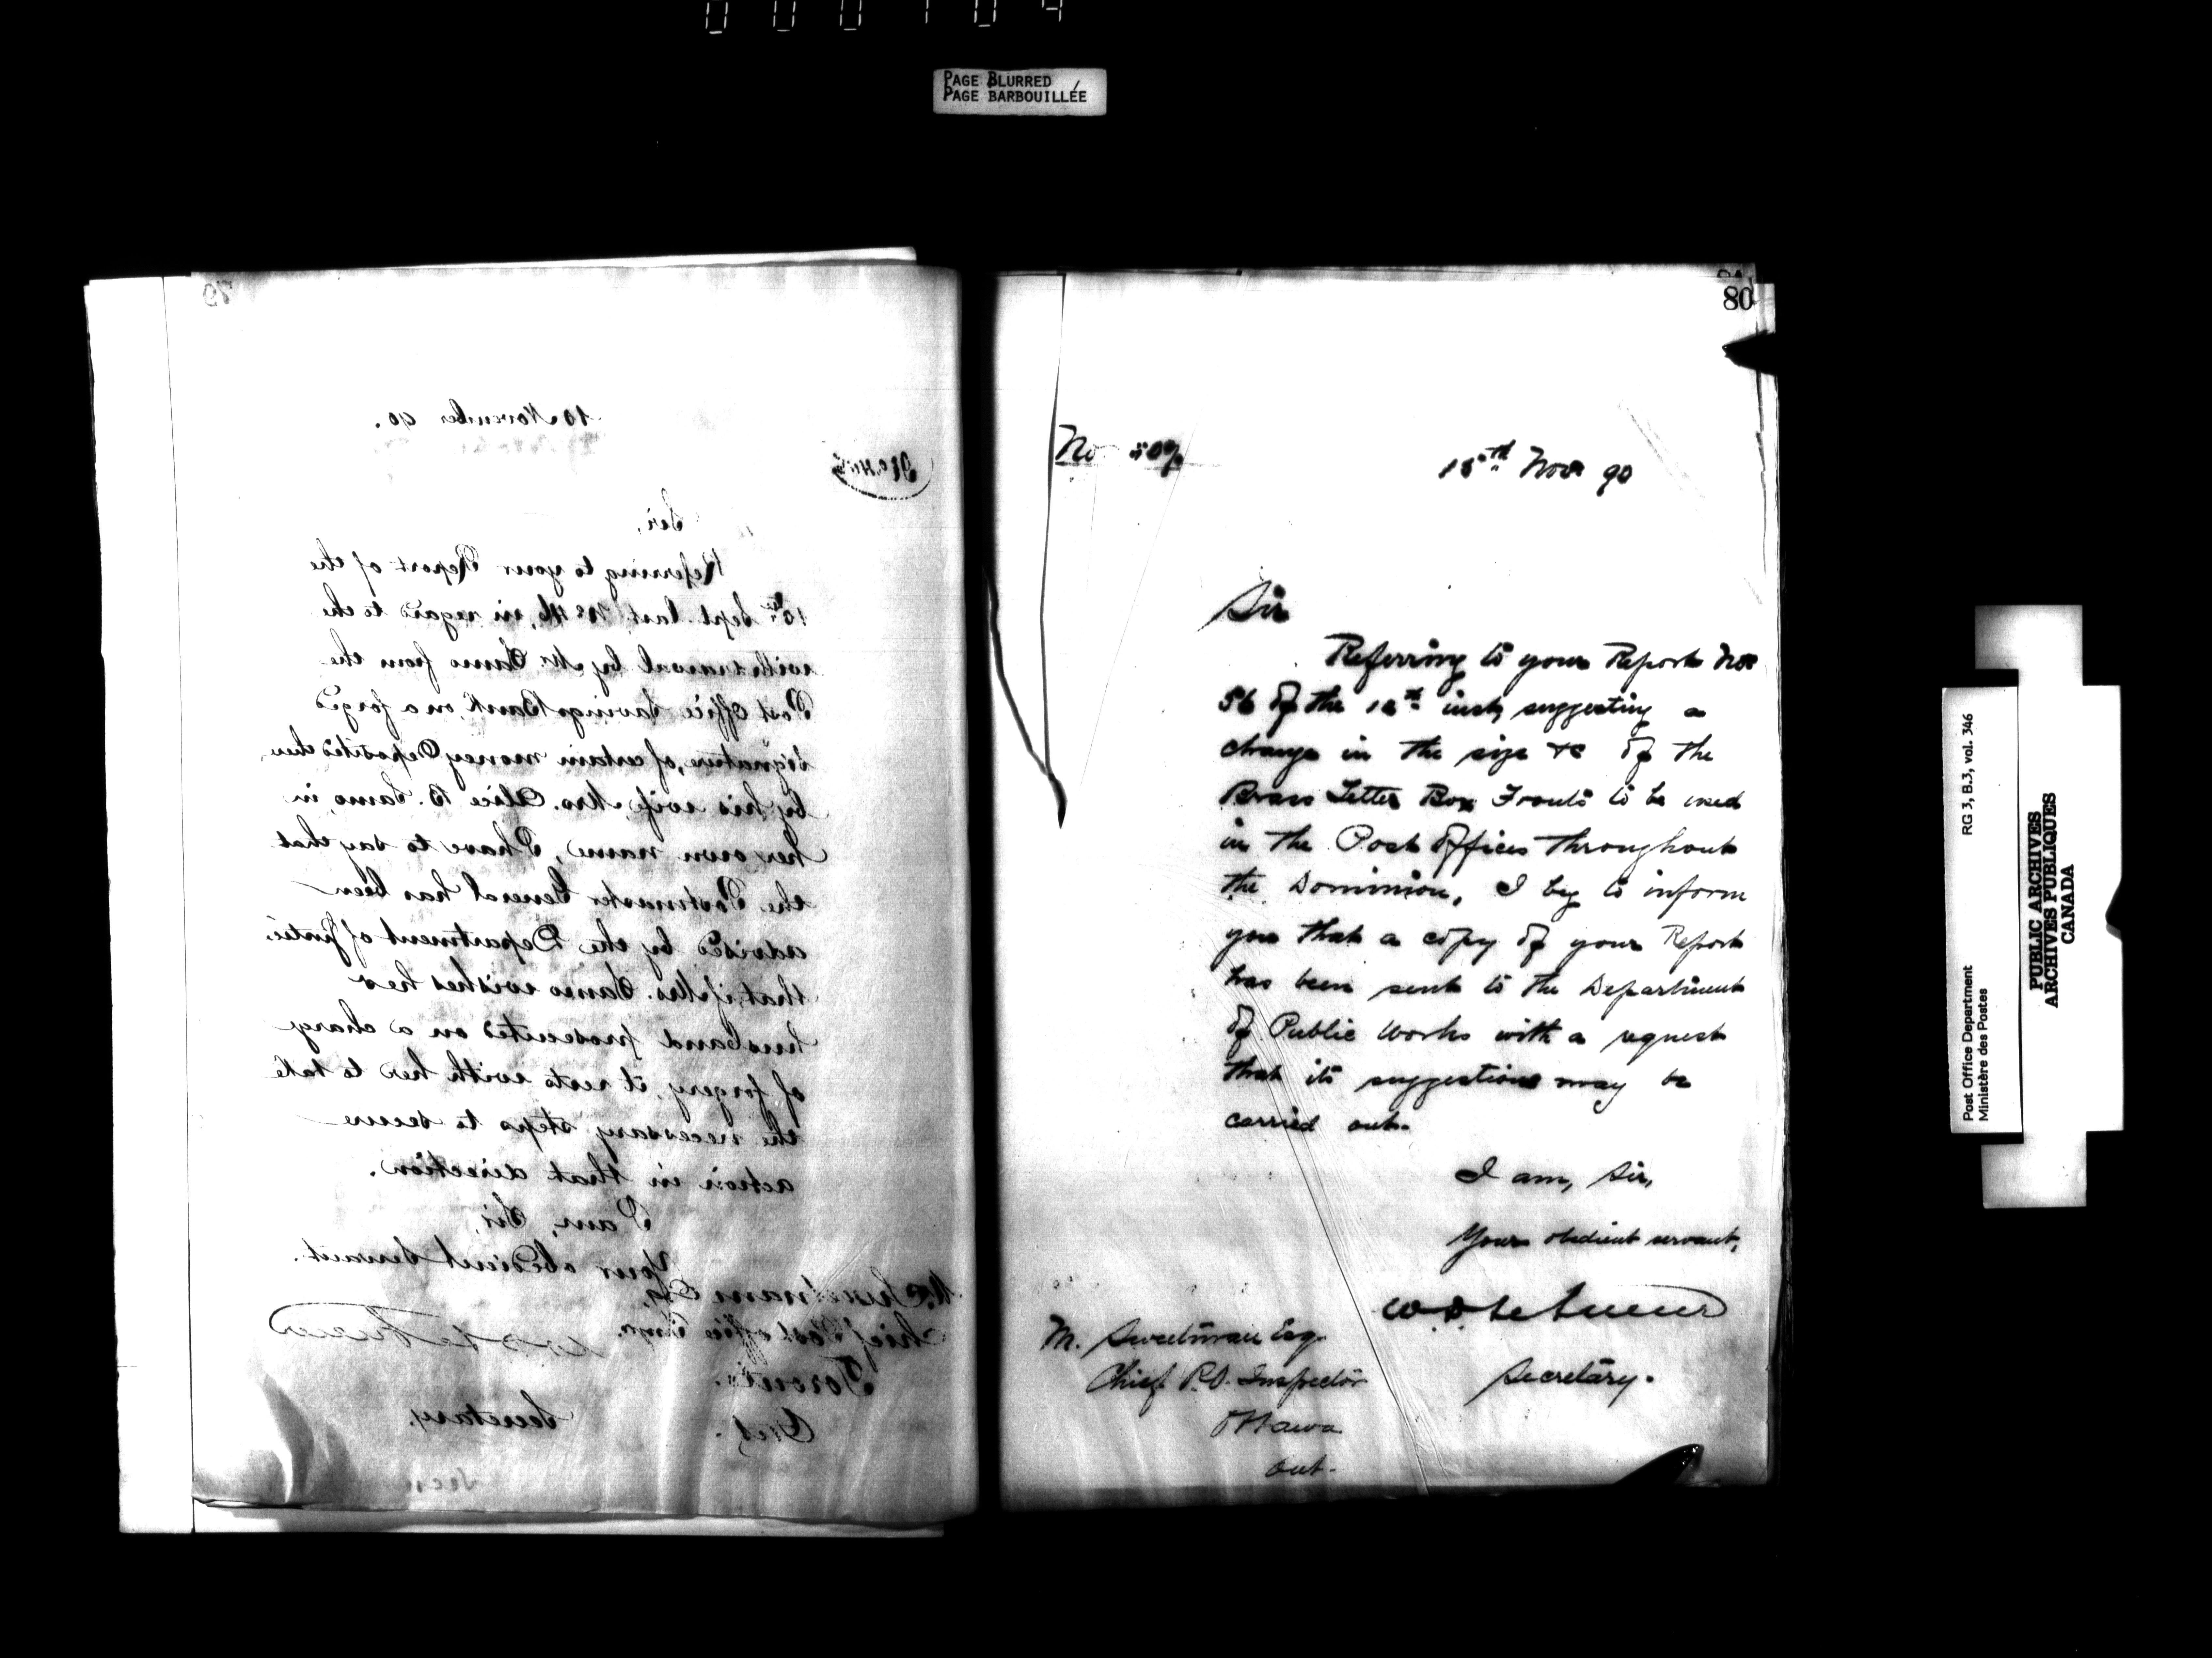 PAGE BLURRED
PAGE BARBOUILLÉE
79
10 November 90.
Sir,
Referring to your Report of the
Sept. last No 46, in regard to the
withdrawal by Mr. from the
Post Office Savings Bank, on a forged
signature, of certain money deposited there
by his wife, Mrs. Alice B. in
her own name, I have to say that
the Postmaster General has been
advised by the Department of Justice
that if Mrs. wishes her
husband prosecuted on a charge
of forgery, it rests with her to take
the necessary steps to secure
action in that direction.
I am, Sir,
Your obedient Servant.
M. Sweetnam Esq
Chief Post Office Insp.
Toronto.
Ont.
W D Le Sueur
Secretary.
80
No
15th Nov 90
Sir
Referring to your Report No
56 of the inst, suggesting a
change in the size &c of the
Brass Letter Box Fronts to be used
in the Post Offices throughout
the Dominion, I beg to inform
you that a copy of your Report
has been sent to the Department
of Public Works with a request
that its suggestions may be
carried out.
I am, Sir,
Your obedient servant,
W D Le Sueur
Secretary.
M. Sweetnam Esq.
Chief P.O. Inspector
Ottawa
Ont.
Post Office Department
Ministère des Postes
RG 3, B.3, vol. 346
PUBLIC ARCHIVES
ARCHIVES PUBLIQUES
CANADA